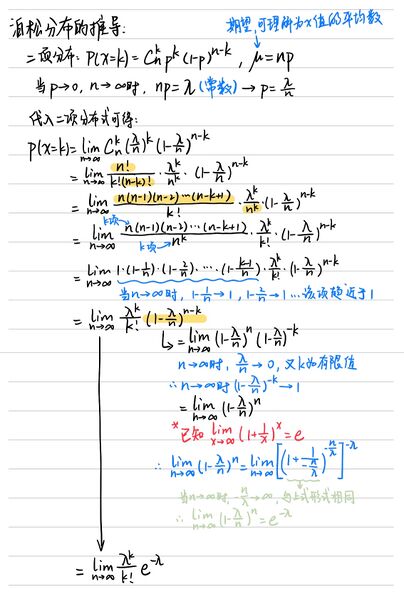 泊松分布的推导:
期望,可理解为x值的平均数
二项分布: P(x=k) = C_n^k p^k (1-p)^{n-k} , μ=np
当 p→0, n→∞时, np=λ (常数) → p=λ/n
代入二项分布式可得:
P(x=k) = lim_{n→∞} C_n^k (λ/n)^k (1-λ/n)^{n-k}
= lim_{n→∞} n!/(k!(n-k)!) · λ^k/n^k · (1-λ/n)^{n-k}
= lim_{n→∞} n(n-1)(n-2)…(n-k+1)/k! · λ^k/n^k · (1-λ/n)^{n-k}
k项
= lim_{n→∞} n(n-1)(n-2)…(n-k+1)/n^k · λ^k/k! · (1-λ/n)^{n-k}
k项
= lim_{n→∞} 1·(1-1/n)·(1-2/n)·…·(1-(k-1)/n)·λ^k/k!·(1-λ/n)^{n-k}
当n→∞时, 1-1/n→1, 1-2/n→1…该项趋近于1
= lim_{n→∞} λ^k/k! (1-λ/n)^{n-k}
↳ = lim_{n→∞} (1-λ/n)^n (1-λ/n)^{-k}
n→∞时, λ/n→0, 又k为有限值
∴ n→∞时 (1-λ/n)^{-k} → 1
= lim_{n→∞} (1-λ/n)^n
*已知 lim_{x→∞} (1+1/x)^x = e
∴ lim_{n→∞} (1-λ/n)^n = lim_{n→∞} [(1+1/(-n/λ))^{-n/λ}]^{-λ}
当n→∞时, -n/λ→∞, 与上式形式相同
∴ lim_{n→∞} (1-λ/n)^n = e^{-λ}
= lim_{n→∞} λ^k/k! e^{-λ}